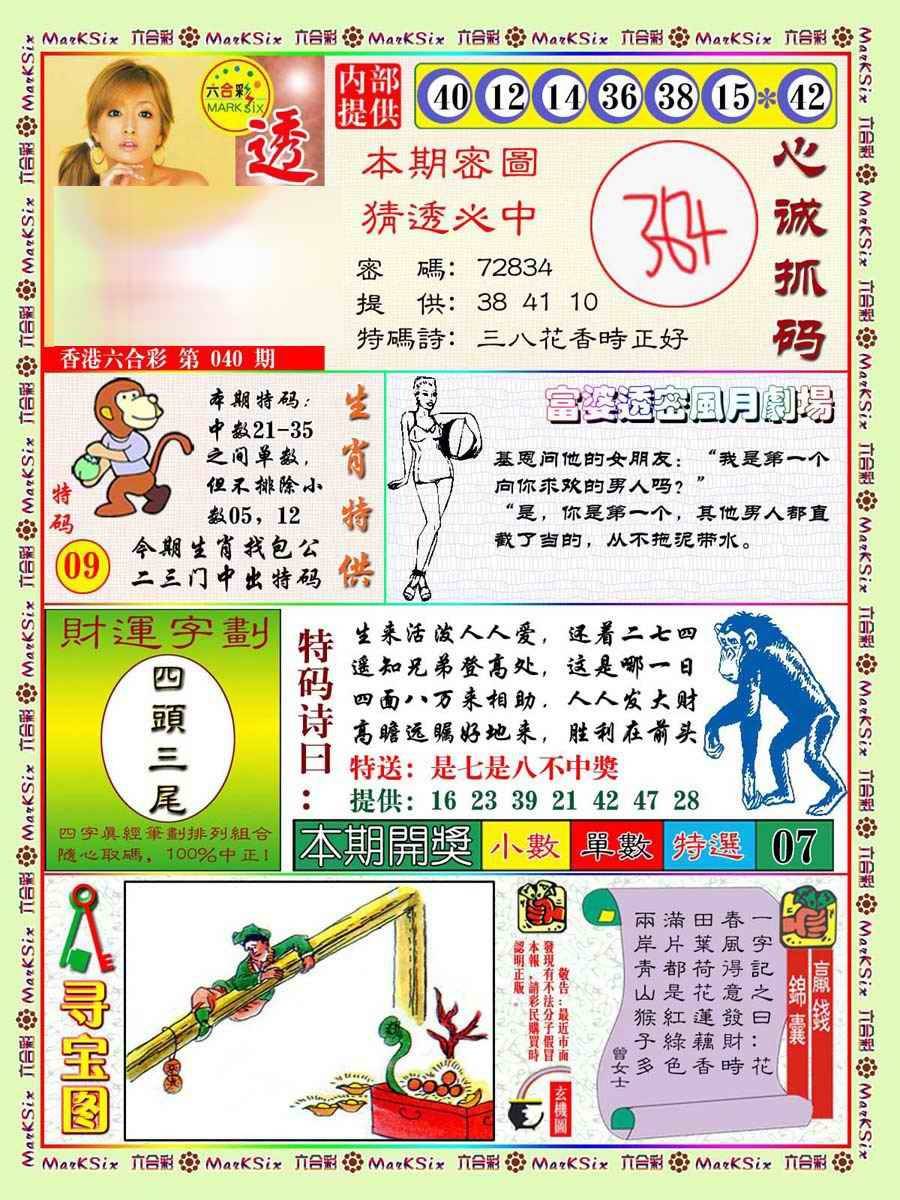 MarKSix 六合彩 MarKSix 六合彩 MarKSix 六合彩 MarKSix 六合彩 MarKSix 六合彩
六合彩
MARK SIX
透
内部
提供
40 12 14 36 38 15 * 42
本期密圖
猜透必中
密 碼: 72834
提 供: 38 41 10
特碼詩: 三八花香時正好
心诚抓码
香港六合彩 第 040 期
本期特码:
中数21-35
之间单数,
但不排除小
数05, 12
今期生肖找包公
二三门中出特码
生肖特供
特码
09
富婆透密風月劇場
基恩问他的女朋友: “我是第一个
向你求欢的男人吗? ”
“是, 你是第一个, 其他男人都直
截了当的, 从不拖泥带水。
財運字劃
四頭三尾
四字真經筆劃排列組合
隨心取碼, 100%中正!
特码诗曰:
生来活泼人人爱, 还着二七四
遥知兄弟登高处, 这是哪一日
四面八万来相助, 人人发大财
高瞻远瞩好地来, 胜利在前头
特送: 是七是八不中獎
提供: 16 23 39 21 42 47 28
本期開獎 小數 單數 特選 07
寻宝图
敬告:最近市面
發現有不法分子假冒
本報,請彩民購買時
認明正版。
玄機圖
贏錢
錦囊
一字記之曰:花
春風得意發財時
田葉荷花蓮藕香
滿片都是紅綠色
兩岸青山猴子多
曾女士
MarKSix 六合彩 MarKSix 六合彩 MarKSix 六合彩 MarKSix 六合彩 MarKSix 六合彩